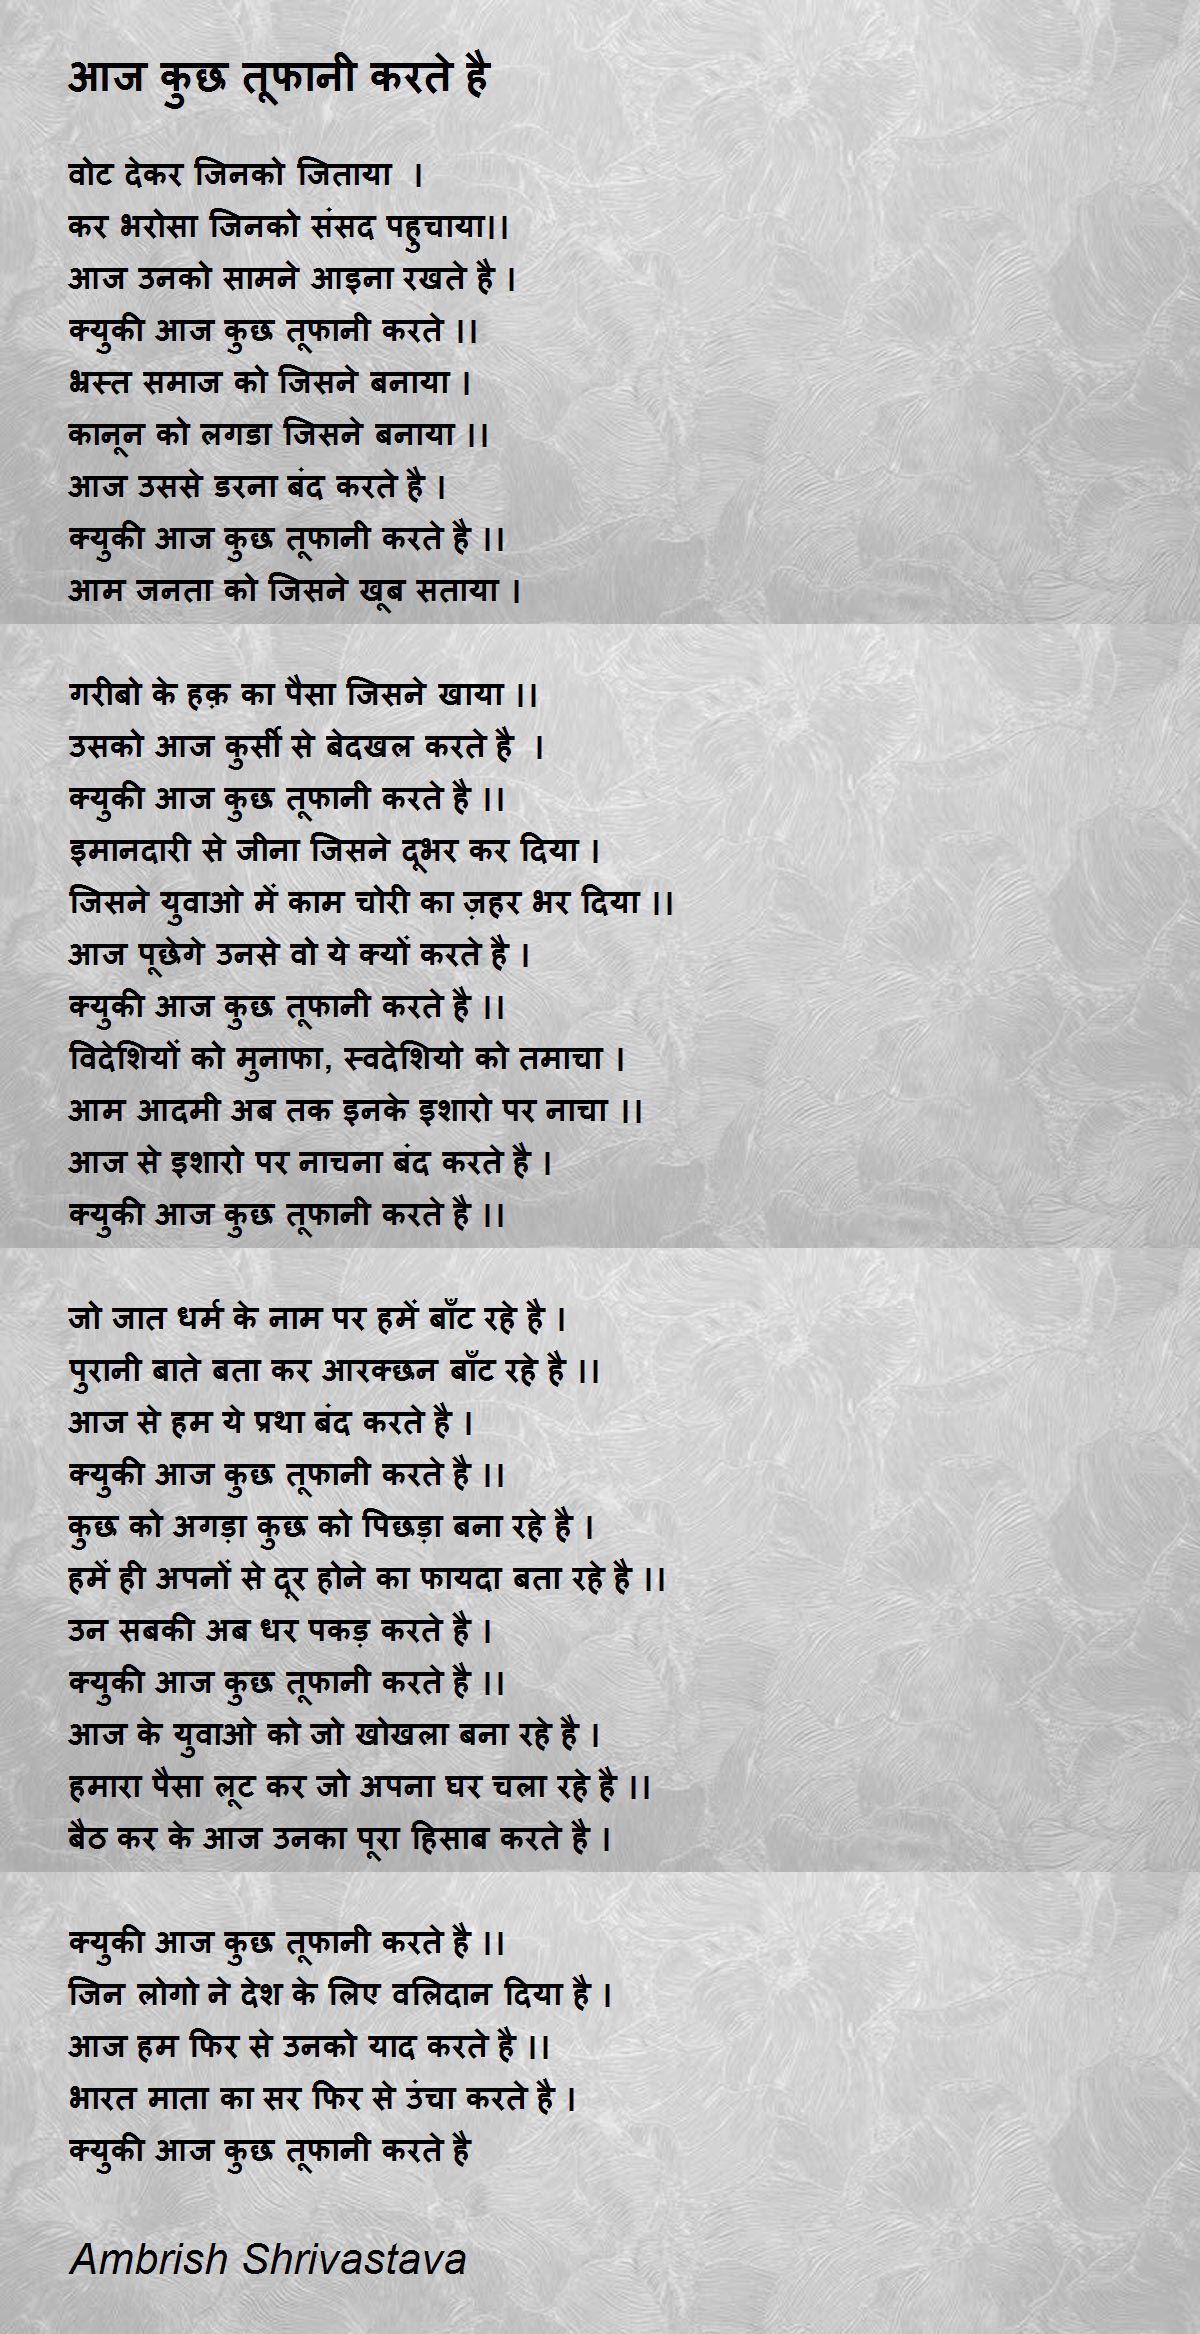 आज कुछ तूफानी करते है
वोट देकर जिनको जिताया ।
कर भरोसा जिनको संसद पहुचाया।।
आज उनको सामने आइना रखते है ।
क्युकी आज कुछ तूफानी करते ।।
भ्रस्त समाज को जिसने बनाया ।
कानून को लगडा जिसने बनाया ।।
आज उससे डरना बंद करते है ।
क्युकी आज कुछ तूफानी करते है ।।
आम जनता को जिसने खूब सताया ।
गरीबो के हक़ का पैसा जिसने खाया ।।
उसको आज कुर्सी से बेदखल करते है ।
क्युकी आज कुछ तूफानी करते है ।।
इमानदारी से जीना जिसने दूभर कर दिया ।
जिसने युवाओ में काम चोरी का ज़हर भर दिया ।।
आज पूछेगे उनसे वो ये क्यों करते है ।
क्युकी आज कुछ तूफानी करते है ।।
विदेशियों को मुनाफा, स्वदेशियो को तमाचा ।
आम आदमी अब तक इनके इशारो पर नाचा ।।
आज से इशारो पर नाचना बंद करते है ।
क्युकी आज कुछ तूफानी करते है ।।
जो जात धर्म के नाम पर हमें बाँट रहे है ।
पुरानी बाते बता कर आरक्छन बाँट रहे है ।।
आज से हम ये प्रथा बंद करते है ।
क्युकी आज कुछ तूफानी करते है ।।
कुछ को अगड़ा कुछ को पिछड़ा बना रहे है ।
हमें ही अपनों से दूर होने का फायदा बता रहे है ।।
उन सबकी अब धर पकड़ करते है ।
क्युकी आज कुछ तूफानी करते है ।।
आज के युवाओ को जो खोखला बना रहे है ।
हमारा पैसा लूट कर जो अपना घर चला रहे है ।।
बैठ कर के आज उनका पूरा हिसाब करते है ।
क्युकी आज कुछ तूफानी करते है ।।
जिन लोगो ने देश के लिए वलिदान दिया है ।
आज हम फिर से उनको याद करते है ।।
भारत माता का सर फिर से उंचा करते है ।
क्युकी आज कुछ तूफानी करते है
Ambrish Shrivastava